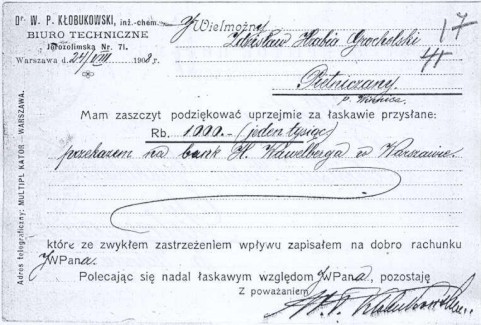 Dr W. P. KŁOBUKOWSKI, inż.-chem.
BIURO TECHNICZNE
Jerozolimska Nr. 71.
Warszawa d. 24/VIII 1908 r.
JWielmożny
Zdzisław Hrabia Grocholski
17
Pietniczany.
p. Winnica.
Mam zaszczyt podziękować uprzejmie za łaskawie przysłane:
Rb. 1000.- (jeden tysiąc)
przekazem na bank H. Wawelberga w Warszawie.
które ze zwykłem zastrzeżeniem wpływu zapisałem na dobro rachunku
JWPana.
Polecając się nadal łaskawym względom JWPana, pozostaję
Z poważaniem
W. P. Kłobukowski
Adres telegraficzny: MULTIPLIKATOR - WARSZAWA.